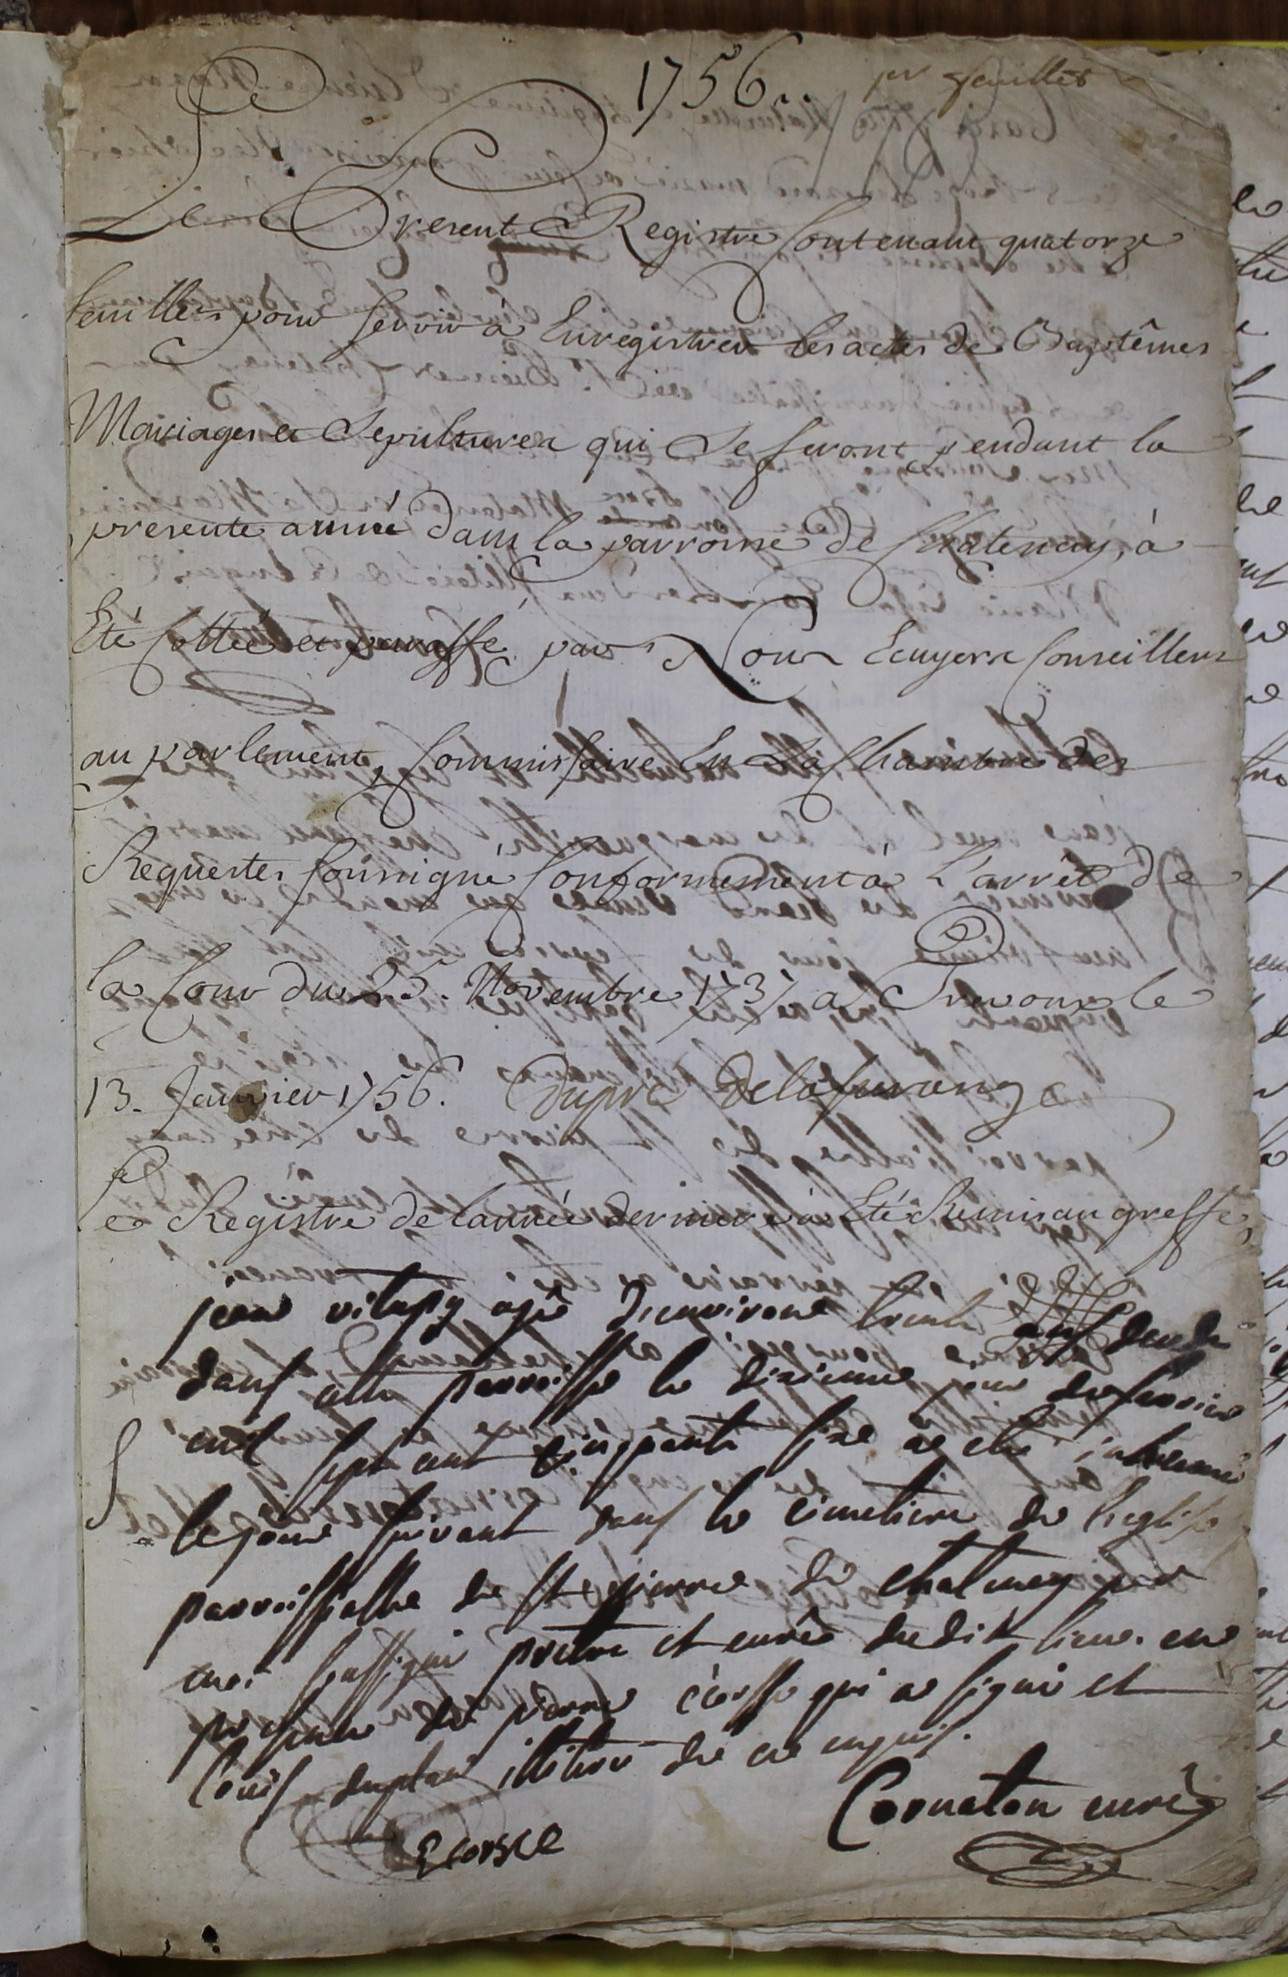 1756..
pr feuillet
Le Present Registre Contenant quatorze
feuillets pour servir à Enregistrer les actes de Baptêmes
Mariages et Sepultures qui se feront pendant la
presente année dans la parroisse de Chatenay, à
Eté Cottée et paraffé par Nous Ecuyer Conseiller
au parlement, Commissaire En La Chambre des
Requestes soussigné Conformément à L'arrêt de
la Cour du 25. Novembre 1737 a Trevoux le
13. Janvier 1756. Dupré Delafurange
Le Registre de l'année derniere à Eté Remis au greffe
jean agé d'environt trente ans decedé
dans cette parroisse le dixieme jour de fevrier
mil sept cent cinquante six a eté inhumé
le jour suivant dans le cimetiere de l'eglise
parroissialle de st pierre de chatenay par
moi soussigné prêtre et curé dudit lieu. en
presence de pierre écorse qui a signé et
louis duplai illitéré de ce enquis.
Ecorsce
Cornaton curé